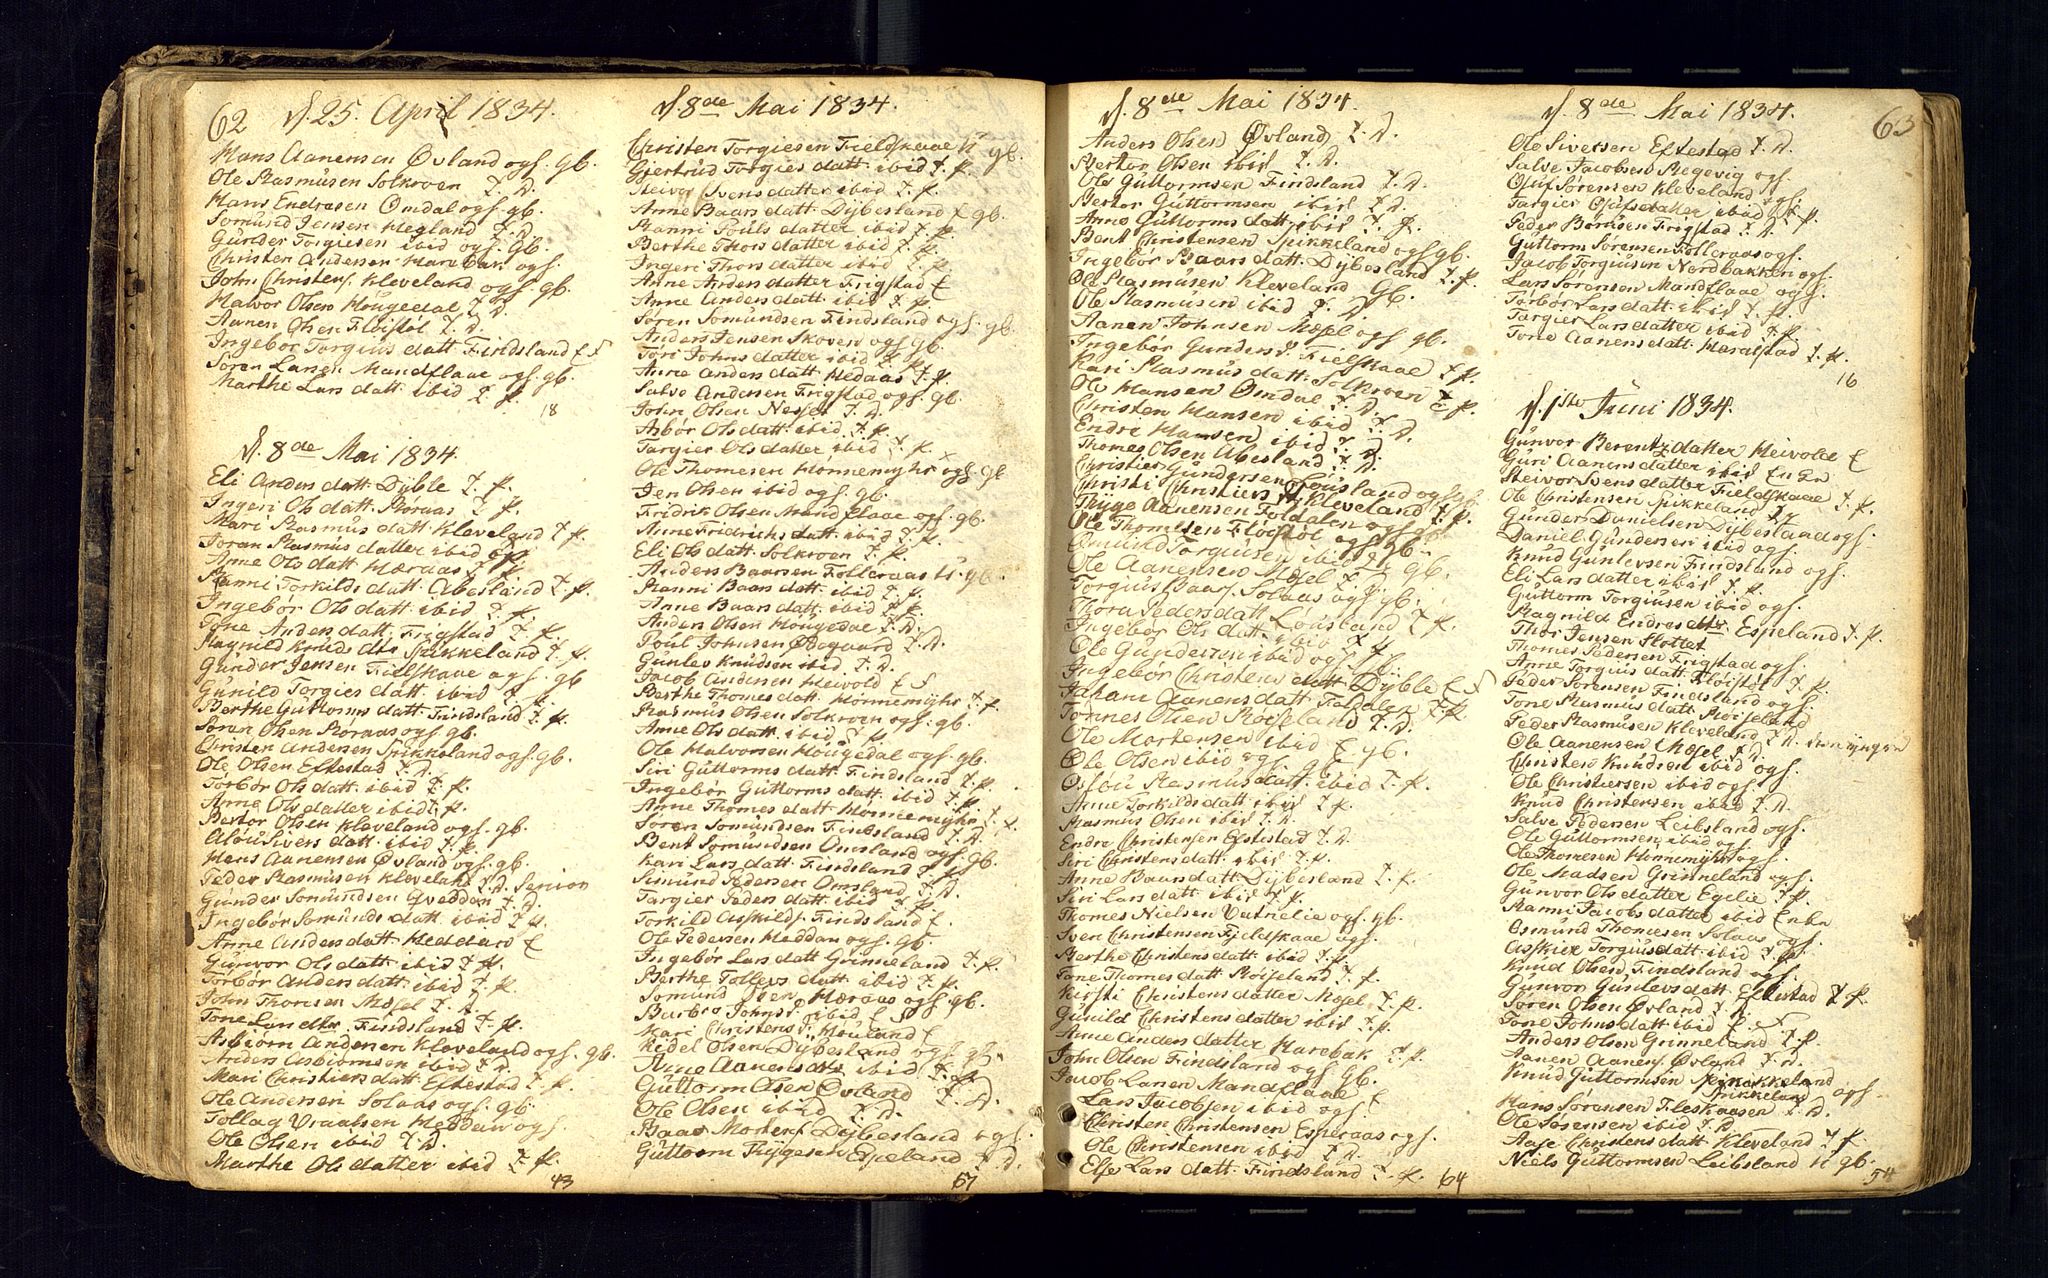 62
d. 25. April 1834.
Hans Aanensen Øvland ogs. gb.
Ole Rasmüsen Solkroen T. D.
Hans Endresen Omdal ogs. gb.
Somünd Jensen Hegland T. D.
Günder Torgiesen ibid ogs. gb.
Christen Andersen Harebak ogs.
John Christens. Kleveland ogs. gb.
Halvor Olsen Hougedal T. D.
Aanen Olsen Fløistøl T. D.
Ingebor Torgius datt Findsland E S
Soren Larsen Mandflaae ogs. gb.
Marthe Lars datt ibid T. p.
18
d. 8de Mai 1834.
Eli Anders datt Dyble T. p.
Ingeri Ols datt. Roraas T. p.
Mari Rasmüs datt Kleveland T. p.
Joran Rasmüs datter ibid T. p.
Anne Ols datt Hæraas T. p.
Ranni Torkilds datt Abesland T. p.
Ingebør Ols datt ibid T. p.
Tone Anders datt Frigstad T. p.
Ragnild Knüds dtr Spikkeland T. p.
Günder Jensen Fielskaae ogs. gb
Günild Torgies datt ibid T. p.
Berthe Güttorms datt Findsland T. p.
Soren Olsen Roraas ogs. gb.
Christen Andersen Spikkeland ogs. gb.
Ole Olsen Eftestad T. D.
Torbor Ols datt ibid T. p.
Anne Ols datter ibid T. p.
Bertor Olsen Kleveland ogs. gb.
Aloü Sivers datt ibid T. p.
Hans Aanensen Øvland ogs. gb.
Peder Rasmüsen Kleveland T. D. Senior
Günder Somündsen Qveddan T. D.
Ingebor Somünds datt ibid T. p.
Anne Anders datt Heddan E
Günvor Ols datt ibid T. p.
Torbør Anders datt ibid T. p.
John Thomesen Mosel T. D.
Tone Lars dtr Findsland T. p.
Asbiorn Andersen Kleveland ogs. gb.
Anders Asbiornsen ibid T. D.
Mari Christiens datt Eftestad T. p.
Ole Andersen Solaas ogs. gb.
Tollag Vraalsen Heddan ogs.
Ole Olsen ibid T. D.
Marthe Ols datter ibid T. p.
43
d. 8de Mai 1834.
Christen Torgiesen Fielskaae U gb.
Giertrud Torgies datt ibid T. p.
Steivor Svens datter ibid T. p.
Anne Baars datt Dybesland E gb.
Ranni Pouls datter ibid T. p.
Berthe Thors datter ibid T. p.
Ingeri Thors datter ibid T. p.
Anne Anders datter Frigstad E
Anne Anders datt ibid T. p.
Søren Somündsen Findsland ogs. gb.
Anders Jensen Skoven ogs gb.
Tori Johns datter ibid T. p.
Anne Anders datt Hedaas T. p.
Salve Andersen Frigstad ogs. gb.
John Olsen Nesset T. D.
Asbør Ols datt ibid T. p.
Targier Ols datter ibid T. p.
Ole Thomesen Honnemyhr ogs. gb
Jen Olsen ibid ogs. gb.
Fridrik Olsen Mandflaae ogs. gb.
Anne Fridrichs datt ibid T. p.
Eli Ols datt Solkroen T. p.
Anders Baarsen Folleraas U. gb.
Ranni Baars datt ibid T. p.
Anne Baars datt ibid T. p.
Anders Olsen Hougedal T. D.
Poul Johnsen Ødegaard T. D.
Gunlev Knüdsen ibid T. D.
Jacob Andersen Heivold E S
Berthe Thomes datt Honnemyhr T. p
Rasmüs Olsen Solkroen ogs. gb.
Anne Ols datt. ibid T. p.
Ole Halvorsen Hougedal ogs. gb.
Siri Güttorms datt Findsland T. p.
Ingebør Güttorms datt ibid T. p.
Anne Thomes datt Honnemyhr T. p.
Søren Somündsen Findsland T. D.
Bent Somündsen Omsland ogs. gb.
Kari Lars datt Findsland T. p.
Simünd Pedersen Omsland T. D.
Targier Peders datt ibid T. p.
Torkild Askilds. Findsland E
Ole Pedersen Heddan ogs. gb.
Ingebor Lars datt Grinneland T. p.
Berthe Tollevs datt ibid T. p.
Somünd Olsen Hæraas ogs. gb.
Barbro Johns d. ibid E S
Kari Christens d. Houland E
Kedel Olsen Dybesland ogs gb.
Anne Aanens dtr ibid T. p.
Güttorm Olsen Øvland T. D.
Ole Olsen ibid T. D.
Baar Mortens. Dybesland ogs.
Güttorm Thygesen Espeland T. D.
67
d. 8de Mai 1834.
Anders Olsen Øvland T. D.
Bertor Olsen ibid T. D.
Ole Güttormsen Findsland T. D.
Bertor Güttormsen ibid T. D.
Anne Güttorms datt. ibid T. p.
Bent Christensen Spikkeland ogs gb.
Ingebor Baars datt. Dybesland T. p.
Ole Rasmüsen Kleveland gb.
Ole Rasmüsen ibid T. D.
Aanen Johnsen Mosel ogs gb.
Ingebør Gunders d. Fielskaae T. p.
Kari Rasmüs datt. Solkroen T. p.
Ole Hansen Omdal T. D.
Christen Hansen ibid T. D.
Endre Hansen ibid T. D.
Thomes Olsen Abesland T. D.
Christier Gündersen Lousland ogs gb.
Christi Christiers d. Kleveland T. p.
Thyge Aanensen Foldalen ogs gb.
Ole Thomesen Fløistøl ogs gb.
Omünd Torgiüsen ibid T. gb.
Ole Aanensen Mosel T. D. gb.
Torgius Baars. Solaas ogs gb.
Thora Peders datt Lousland T. p.
Ingebor Ols datt ibid T. p.
Ole Gundersen ibid ogs. gb.
Ingebør Christens datt Dyble E S
Johane Aanens datt Foldalen T. p.
Tønnes Olsen Røiseland T. D.
Ole Mortensen ibid E gb.
Ole Olsen ibid ogs. gb.
Osloü Rasmüs datt. ibid T. p.
Anne Torkilds datt ibid T. p.
Rasmüs Olsen ibid T. D.
Endre Christensen Eftestad T. D.
Siri Christens datt ibid T. p.
Anne Baars datt Dybesland T. p.
Siri Lars datt ibid T. p.
Thomes Nielsen Vatnelie ogs. gb.
Sven Christensen Fjeldskaae ogs.
Berthe Christens datt ibid T. p.
Tone Thomes datt Røiseland T. p.
Kirsti Christens datter Mosel T. p.
Günild Christens datter ibid T. p.
Anne Anders datter Harebak T. p.
John Olsen Findsland ogs gb.
Jacob Larsen Mandflaae E
Lars Jacobsen ibid ogs.
Christen Christensen Esperaas ogs.
Ole Christensen ibid T. D.
Else Lars datt. Findsland T. p.
64
63
d. 8de Mai 1834.
Ole Sivertsen Eftestad T. D.
Salve Jacobsen Regevig ogs.
Oluf Sørensen Kleveland ogs.
Targier Olufs datter ibid T. p.
Peder Børüsen Frigstad T. D.
Güttorm Sørensen Folleraas ogs.
Jacob Torgiüsen Nordbakken ogs.
Lars Sørensen Mandflaae ogs.
Torbør Lars datt ibid T. p.
Targier Lars datter ibid T. p.
Tone Aanens datt. Haralstad T. p.
16
d. 1ste Juni 1834.
Günvor Berentz datter Heivold E
Güri Aanens datter ibid
Steivor Svens datter Fieldskaae T. p.
Ole Christensen Spikkeland T.
Günder Danielsen Dybesland ogs.
Daniel Gündersen ibid ogs.
Knud Günlevsen Findsland ogs.
Eli Lars datter ibid T. p.
Güttorm Torgiüsen ibid ogs.
Ragnild Endres dtr. Espeland T. p.
Thor Jensen Slottet
Thomes Pedersen Frigstad ogs.
Anne Torgiüs datt Fløistøl T. p.
Peder Sørensen Findsland ogs.
Tone Rasmüs datt Røiseland
Peder Rasmüsen Kleveland T. D. den yngre
Ole Aanensen Mosel T. D.
Christen Knüdsen ibid ogs.
Ole Christensen ibid ogs
Knüd Christensen ibid T. D.
Salve Pedersen Leibsland ogs.
Ole Güttormsen ibid ogs
Ole Thomesen Honnemyhr ogs.
Ole Madsen Grinneland ogs.
Günvor Ols datter Egelie T. p.
Ranni Jacobs datter ibid Enke
Osmünd Thomesen Solaas ogs.
Asskier Torgius datt ibid T. p.
Knüd Olsen Findsland ogs.
Günvor Günlevs datt. Eftestad T. p.
Søren Olsen Øvland T. D.
Tone Johns datt ibid E S
Anders Olsen Grinneland T. D.
Aanen Aanens. Øvland T. D.
Knüd Güttormsen Spikkeland
Spikkeland ogs.
Hans Sørensen Fleskaasen T. D.
Ole Sørensen ibid T. D.
Aase Christens datt Kleveland T. p.
Niels Güttormsen Leibsland U gb.
54